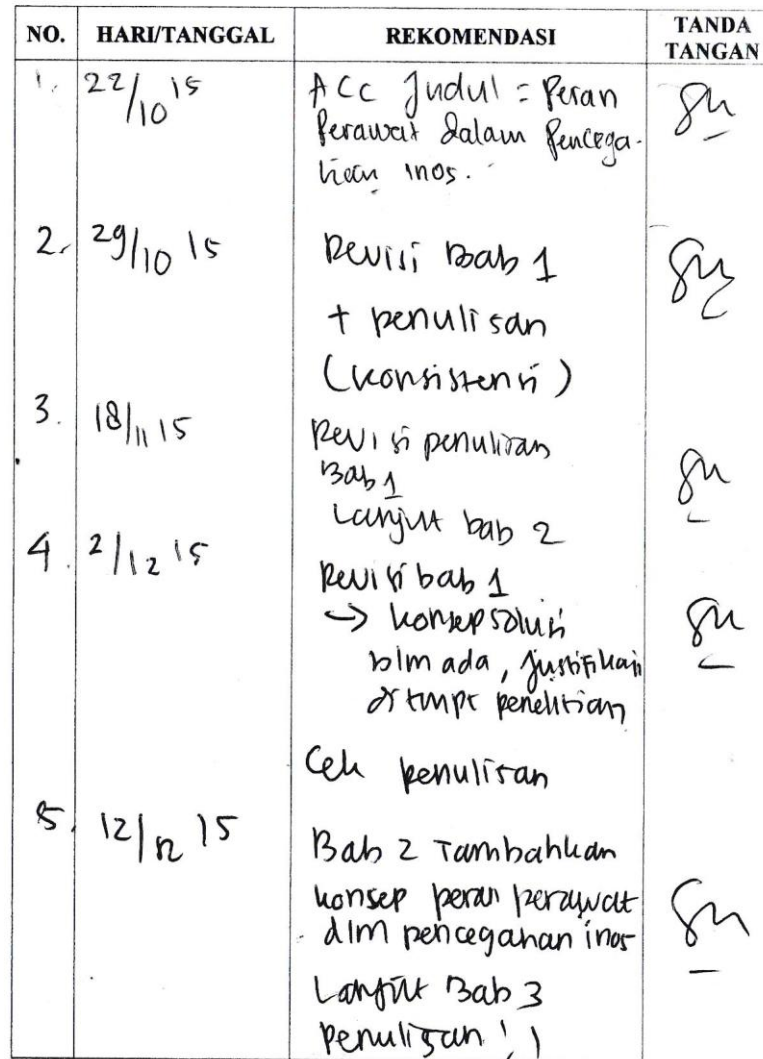 NO. HARI/TANGGAL REKOMENDASI TANDA TANGAN
1. 22/10 15 ACC Judul = Peran
Perawat dalam Pencega-
han inos.
2. 29/10 15 Revisi Bab 1
+ penulisan
(konsistensi)
3. 18/11 15 Revisi penulisan
Bab 1
Lanjut bab 2
4. 2/12 15 Revisi bab 1
→ konsep solusi
blm ada, justifikasi
di tmpt penelitian
Cek penulisan
5. 12/12 15 Bab 2 Tambahkan
konsep peran perawat
dlm pencegahan inos
Lanjut Bab 3
Penulisan !!